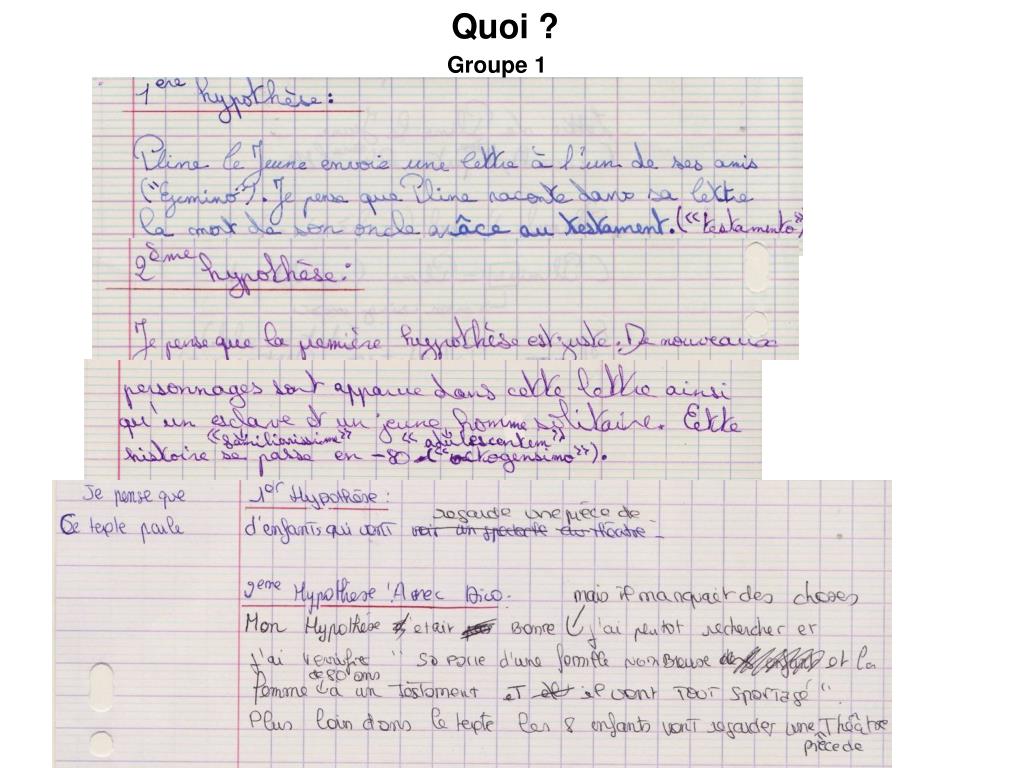 Quoi ?
Groupe 1
1ère hypothèse:
Pline le Jeune envoie une lettre à l'un de ses amis
("Geminio"). Je pense que Pline raconte dans sa lettre
la mort de son oncle grâce au testament. (<<testamento>>)
2ème hypothèse:
Je pense que la première hypothèse est juste. De nouveaux
personnages sont apparue dans cette lettre ainsi
qu'un esclave et un jeune homme solitaire. Cette
<<familiarissime>> <<adulescentem>>
histoire se passe en -80 (<<octogensimo>>).
Je pense que
Ce texte parle
1er Hypothèse:
regarde une pièce de
d'enfants qui vont voir un spectacle du théâtre
2eme Hypothese Avec Dico. mais il manquait des choses
Mon Hypothése était Bonne j'ai plutot rechercher et
j'ai "sa parle d'une famille nonbreuse et la
de 80 ans
femme a un Testament et il vont Tout spartagé".
Plus loin dans le texte les 8 enfants vont regarder une Théâtre
pièce de